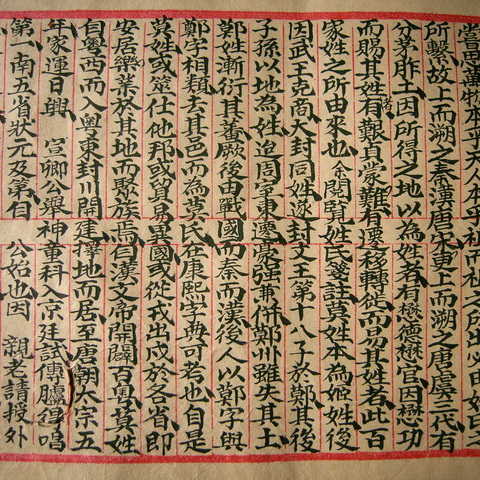 嘗思萬物本乎天人本乎祖而祖之所出必由姓氏之
所繫故上而溯之秦漢唐宋更上而溯之唐虞三代有
分茅胙土因所得之地以為姓者有懋德懋官因懋功
而賜其姓有諸艱貞蒙難有遷移轉徙而易其姓者此百
家姓之所由來也余閱覽姓氏箋註莫姓本為姬姓後
因武王克商大封同姓遂封文王第十八子於鄚其後
子孫以地為姓迨周室東遷豪强兼併鄚州雖失其土
鄚姓漸衍其蕃厥後由戰國而秦而漢後人以鄚字與
鄭字相類去其邑而為莫氏在康熙字典可考也自是
莫姓或筮仕他邦或貿易異國或從戎出戍於各省即
安居樂業於其地而聚族焉自漢文帝開闢百粵莫姓
自粵西而入粵東封川開建擇地而居至唐朝太宗五
年家運日興 宣卿公舉神童科入京廷試傳臚得唱
第一南五省狀元及第自 公始也因 親老請授外